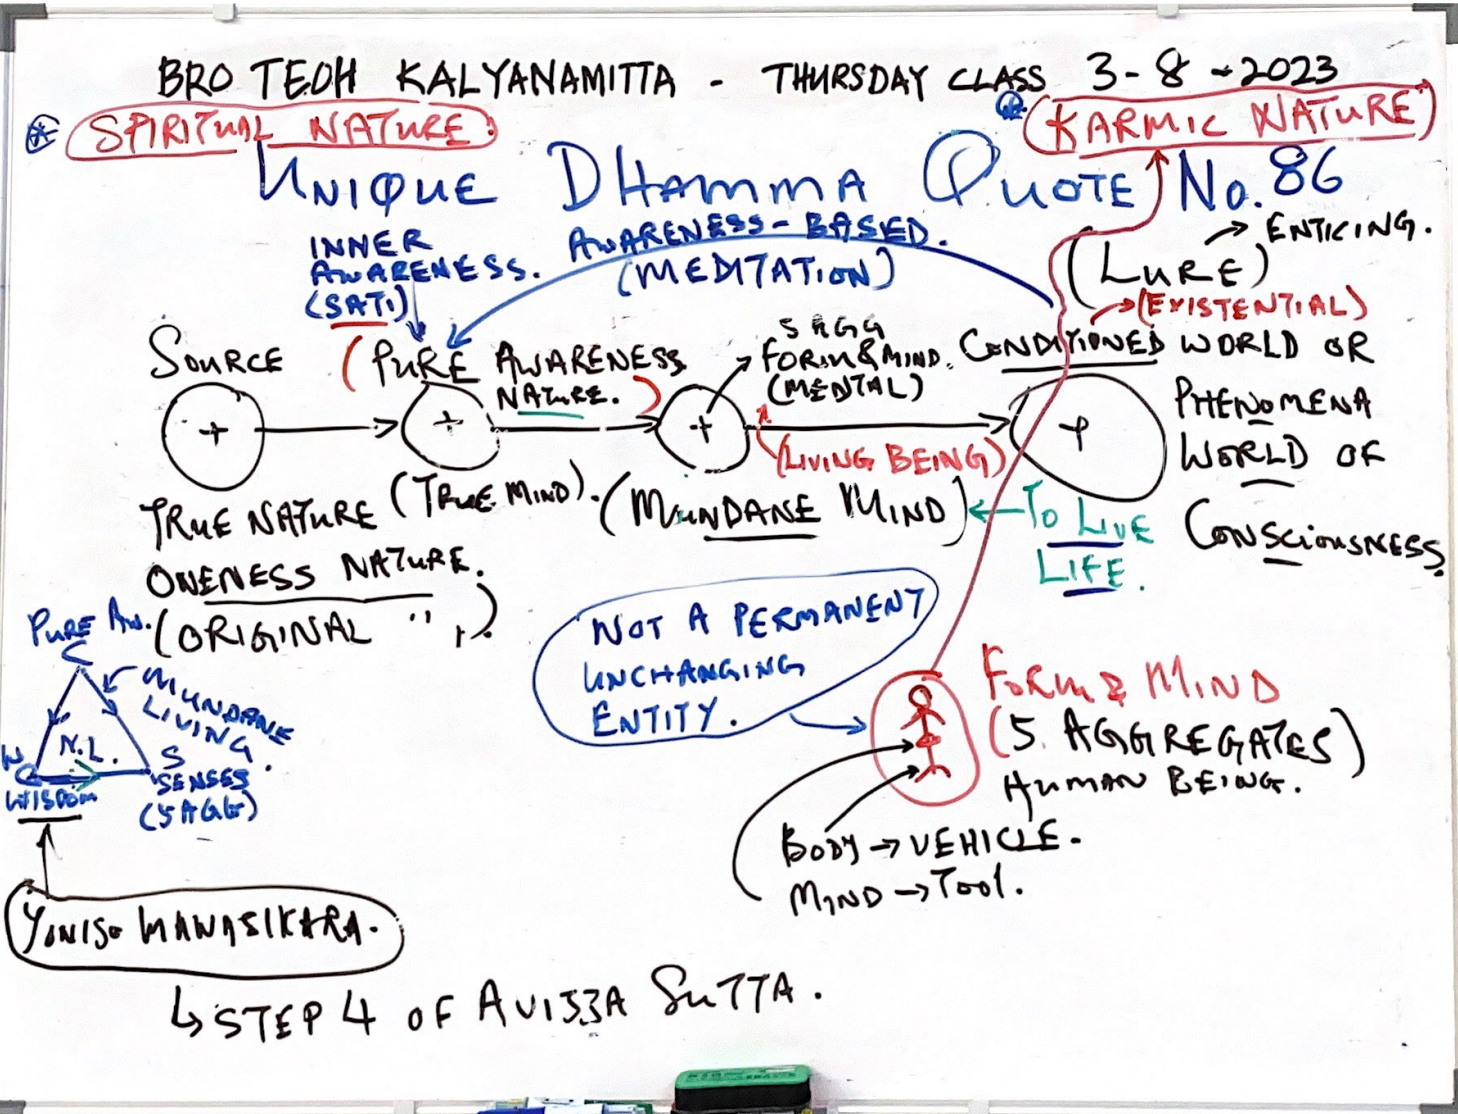 BRO TEOH KALYANAMITTA - THURSDAY CLASS 3-8-2023
SPIRITUAL NATURE
KARMIC NATURE
UNIQUE DHAMMA QUOTE No. 86
INNER
AWARENESS.
(SATI)
AWARENESS-BASED.
(MEDITATION)
(LURE) → ENTICING.
→ (EXISTENTIAL)
SOURCE
(PURE AWARENESS
NATURE.)
5 AGG
FORM & MIND.
(MENTAL)
CONDITIONED WORLD OR
PHENOMENA
WORLD OF
CONSCIOUSNESS.
(LIVING BEING)
TRUE NATURE
ONENESS NATURE.
(ORIGINAL " ")
(TRUE MIND).
(MUNDANE MIND)
← TO LIVE
LIFE.
PURE AW.
C
MUNDANE
LIVING.
N.L.
W
WISDOM
S
SENSES
(5 AGG)
NOT A PERMANENT
UNCHANGING
ENTITY.
FORM & MIND
(5. AGGREGATES)
HUMAN BEING.
BODY → VEHICLE.
MIND → TOOL.
YONISO MANASIKARA.
↳ STEP 4 OF AVIJJA SUTTA.